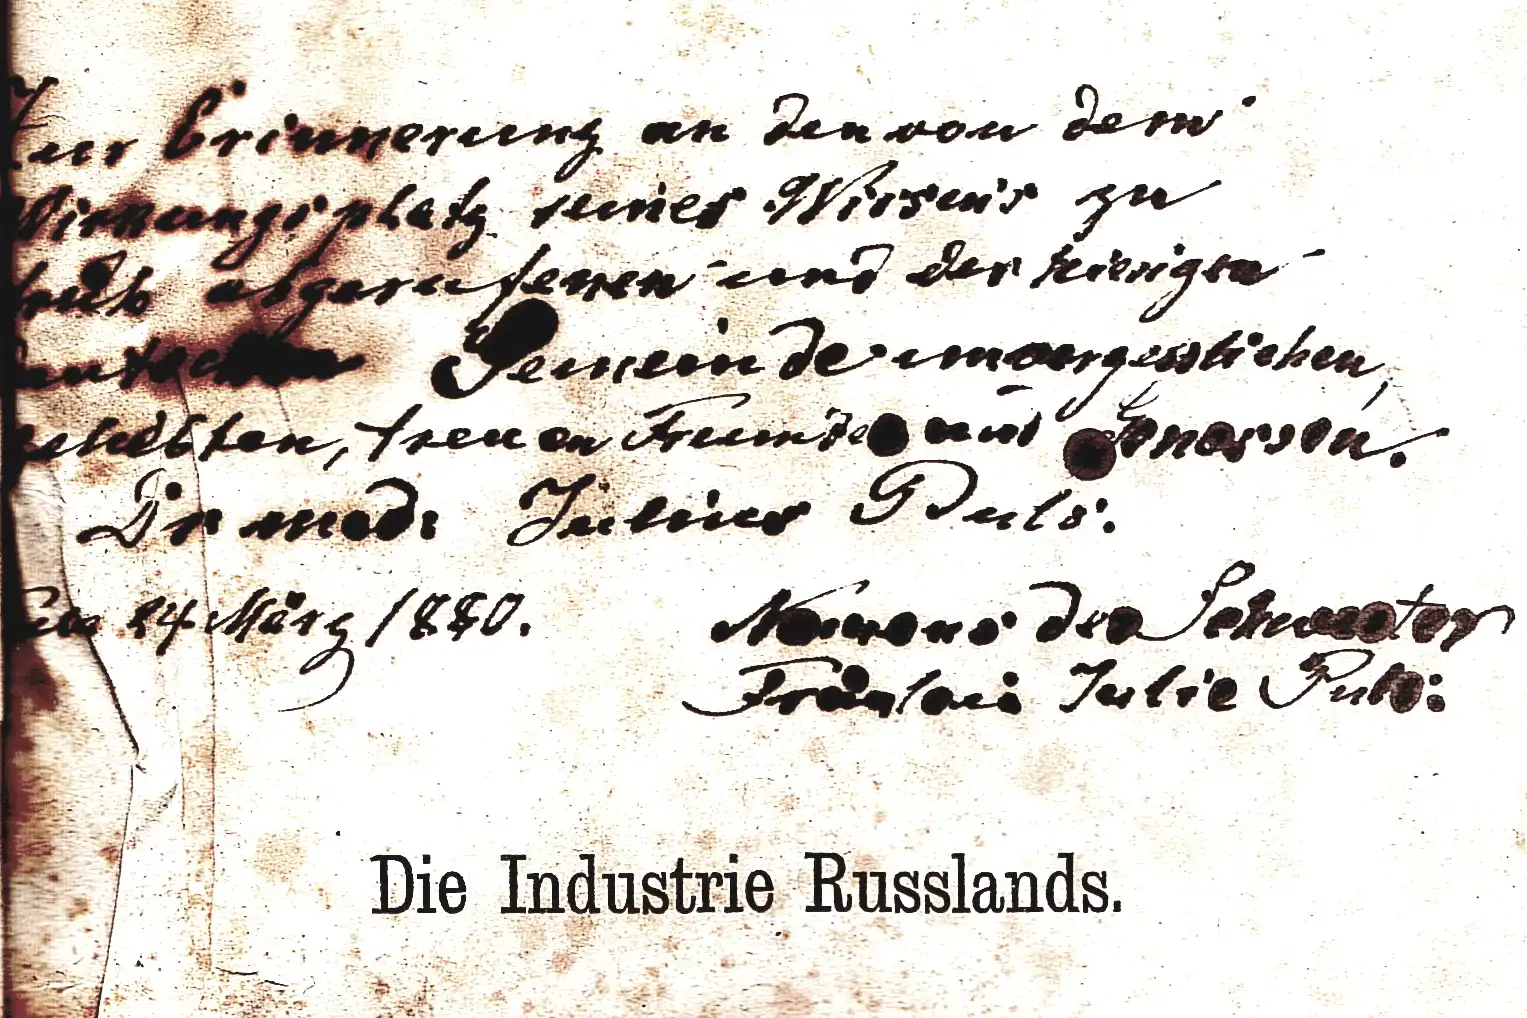 Zur Erinnerung an den von dem
Wirkungsplatz seines Wissens zu
früh abgerufenen und der hiesigen
deutschen Gemeinde unvergesslichen,
geliebten, treuen Freunde und Genossen.
Dr med: Julius Puls.
24 März 1880. Namens der Schwester
Fräulein Julie Puls:
Die Industrie Russlands.